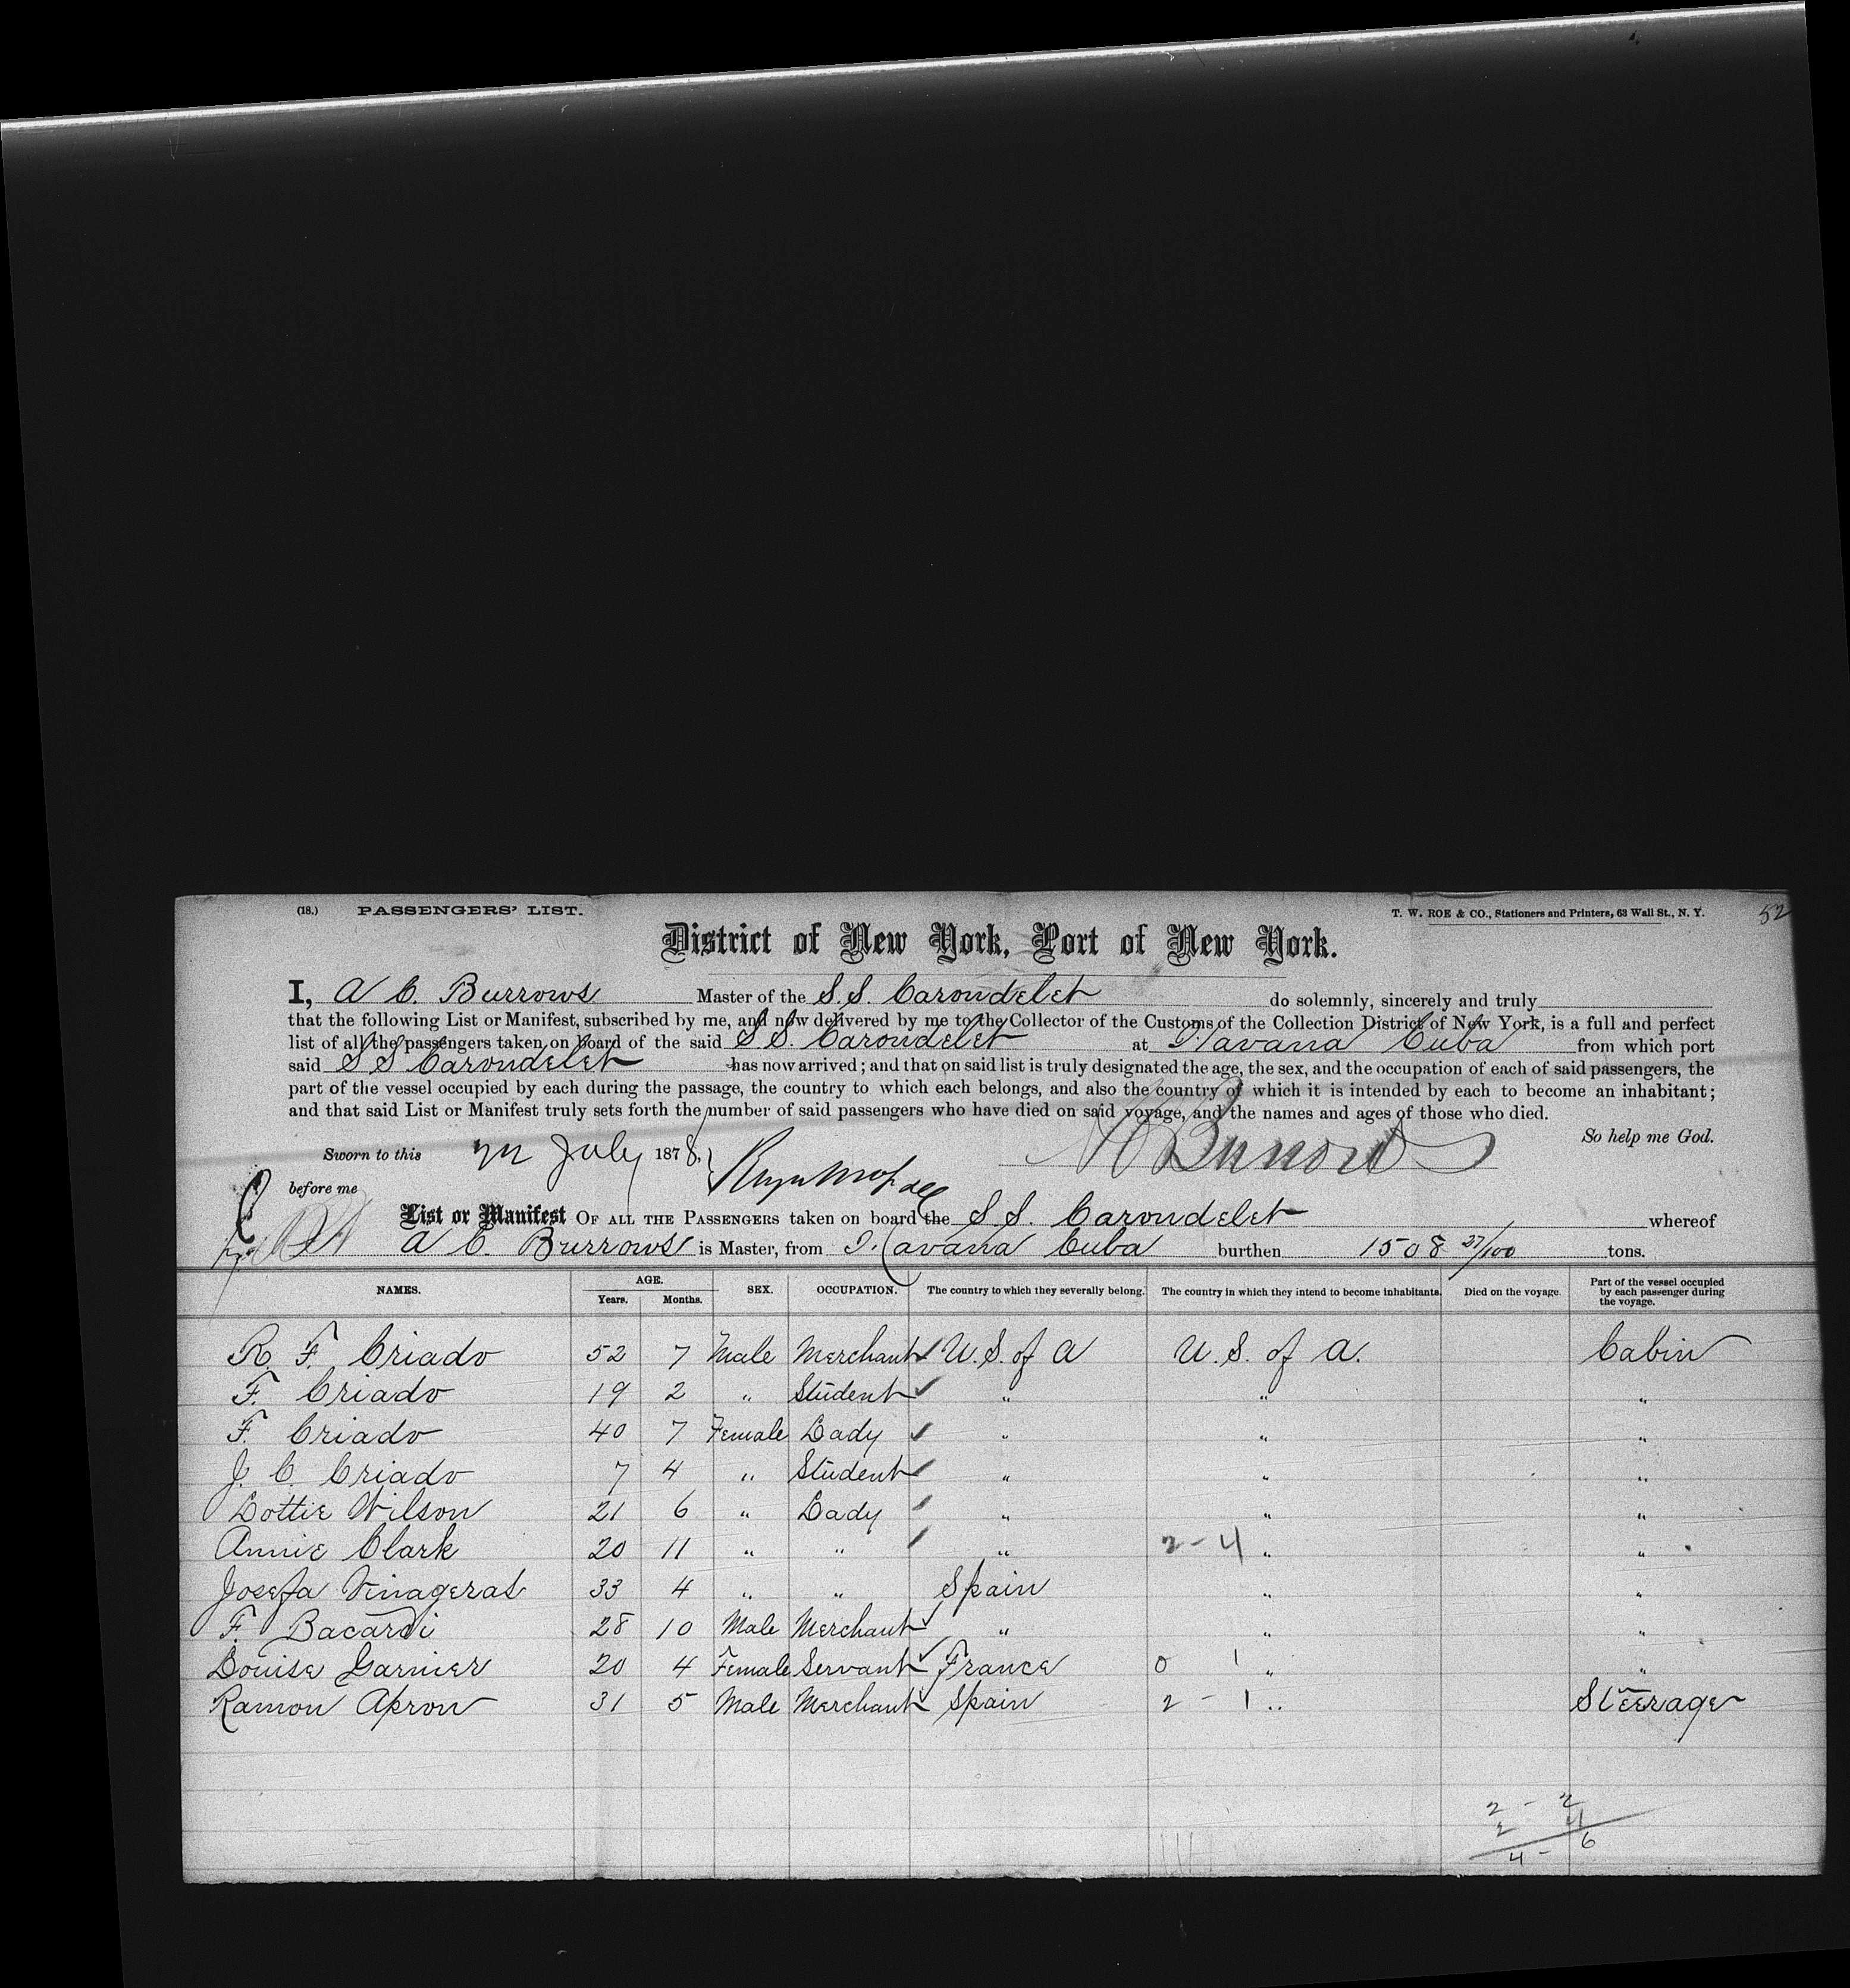 (18.) PASSENGERS' LIST. T. W. ROE & CO., Stationers and Printers, 63 Wall St., N. Y. 52
District of New York, Port of New York.
I, A C. Burrows Master of the S.S. Carondelet do solemnly, sincerely and truly
that the following List or Manifest, subscribed by me, and now delivered by me to the Collector of the Customs of the Collection District of New York, is a full and perfect
list of all the passengers taken on board of the said S.S. Carondelet at Havana Cuba from which port
said S S Carondelet has now arrived; and that on said list is truly designated the age, the sex, and the occupation of each of said passengers, the
part of the vessel occupied by each during the passage, the country to which each belongs, and also the country of which it is intended by each to become an inhabitant;
and that said List or Manifest truly sets forth the number of said passengers who have died on said voyage, and the names and ages of those who died.
So help me God.
Sworn to this July 1878, A C Burrows
before me
List or Manifest OF ALL THE PASSENGERS taken on board the S S. Carondelet whereof
A C. Burrows is Master, from Havana Cuba burthen 1508 27/100 tons.
NAMES. AGE. Years. Months. SEX. OCCUPATION. The country to which they severally belong. The country in which they intend to become inhabitants. Died on the voyage. Part of the vessel occupied by each passenger during the voyage.
R. F. Criado 52 7 Male Merchant U.S. of A U.S. of A. Cabin
F. Criado 19 2 " Student " " "
F. Criado 40 7 Female Lady " " "
J. C. Criado 7 4 " Student " " "
Lottie Wilson 21 6 " Lady " " "
Annie Clark 20 11 " " " 2 - 4 " "
Josefa Vinageras 33 4 " " Spain " "
F. Bacardi 28 10 Male Merchant " " "
Louise Garnier 20 4 Female Servant France 0 1 " "
Ramon Apron 31 5 Male Merchant Spain 2 - 1 " Steerage
2 - 2
2 4
4 - 6